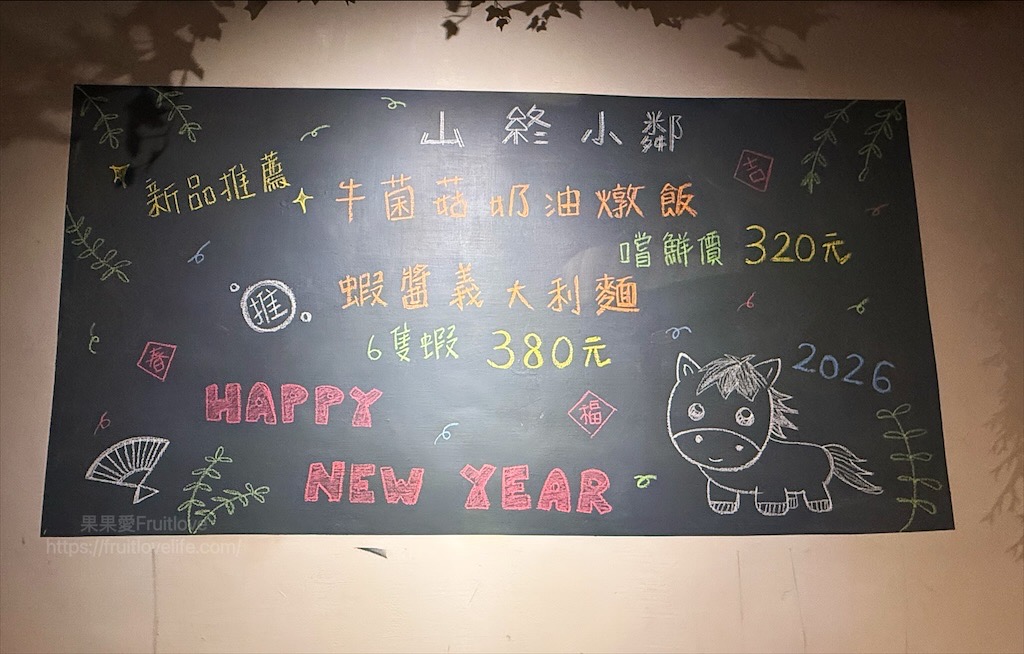 山終小鄰
新品推薦
牛菌菇奶油燉飯
嚐鮮價 320元
推
蝦醬義大利麵
6隻蝦 380元
吉
春
福
2026
HAPPY
NEW YEAR
果果愛Fruitlove
https://fruitlovelife.com/